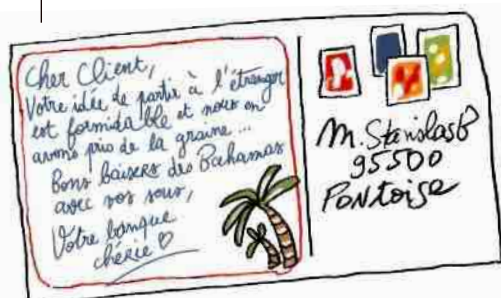 Cher Client,
Votre idée de partir à l'étranger
est formidable et nous en
avons pris de la graine...
Bons baisers des Bahamas
avec vos sous,
Votre banque
chérie
M. Stanislas B
95500
Pontoise